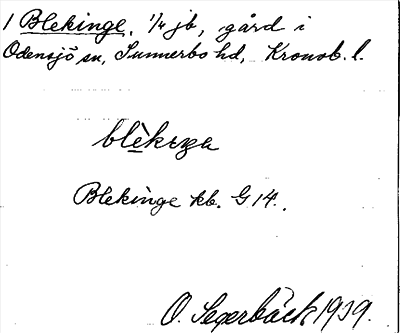 1 Blekinge, 1/4 jb, gård i
Odensjö sn, Sunnerbo hd, Kronob. l.
blèkıŋa
Blekinge kb. G 14.
O. Segerbäck 1939.